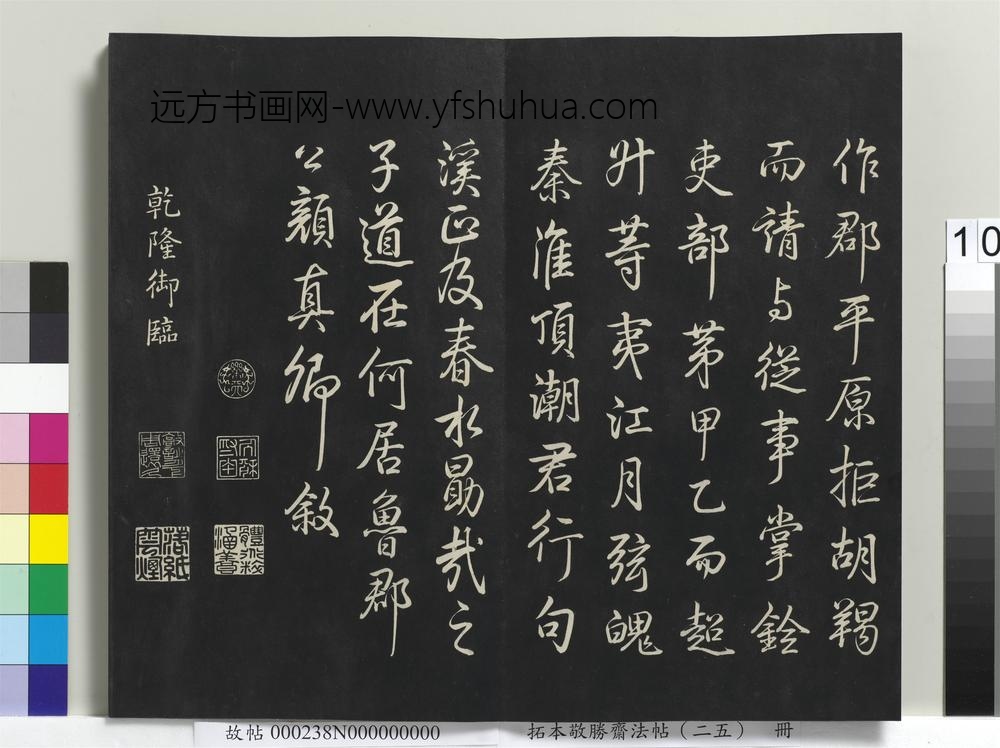 远方书画网-www.yfshuhua.com
作郡平原拒胡羯
而請与從事掌銓
吏部苐甲乙而超
升䓁夷江月弦魄
秦淮頂潮君行句
溪正及春水勗哉之
子道在何居魯郡
公顏真卿敘
乾隆御臨
落紙雲煙
10
故帖 000238N000000000
拓本敬勝齋法帖（二五） 冊